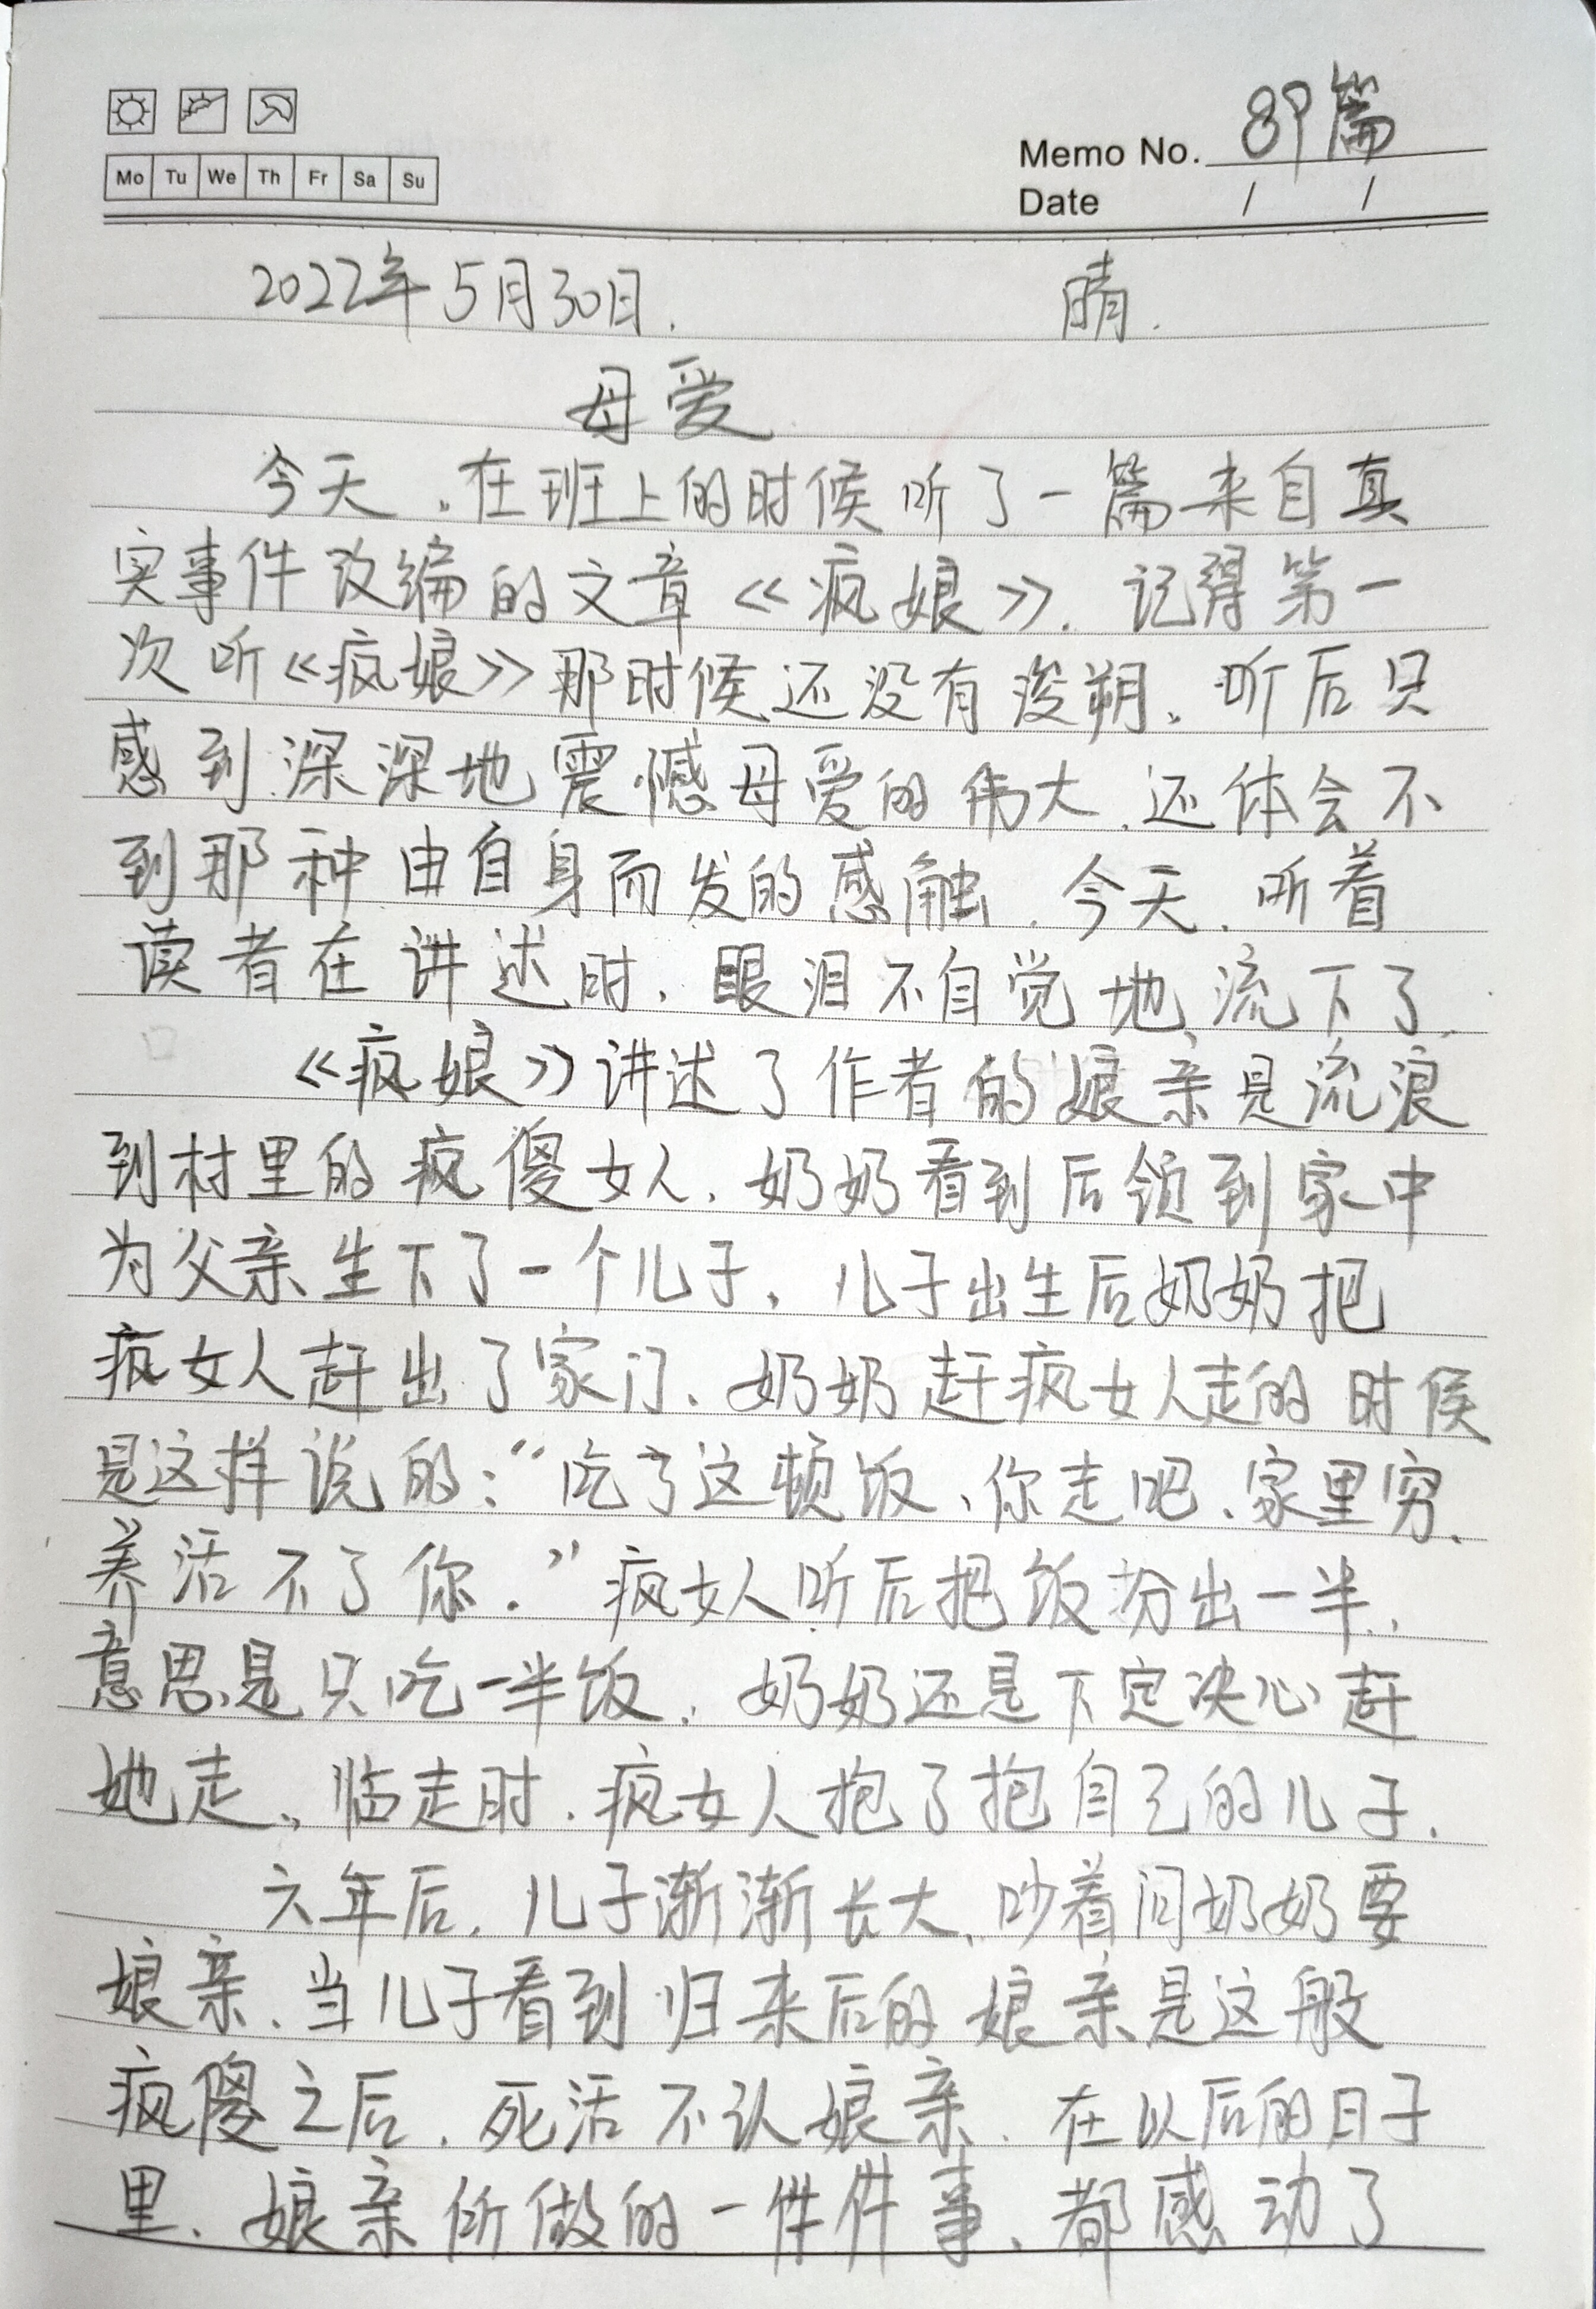 Memo No. 89篇
Mo Tu We Th Fr Sa Su
Date / /
2022年5月30日. 晴.
母爱
今天,在班上的时候听了一篇来自真
实事件改编的文章《疯娘》.记得第一
次听《疯娘》那时候还没有浚朔,听后只
感到深深地震憾母爱的伟大,还体会不
到那种由自身而发的感触,今天,听着
读者在讲述时,眼泪不自觉地流下了.
《疯娘》讲述了作者的娘亲是流浪
到村里的疯傻女人,奶奶看到后领到家中
为父亲生下了一个儿子,儿子出生后奶奶把
疯女人赶出了家门,奶奶赶疯女人走的时候
是这样说的:“吃了这顿饭,你走吧,家里穷,
养活不了你.”疯女人听后把饭扮出一半,
意思是只吃一半饭,奶奶还是下定决心赶
她走,临走时,疯女人抱了抱自己的儿子.
六年后,儿子渐渐长大,吵着问奶奶要
娘亲,当儿子看到归来后的娘亲是这般
疯傻之后,死活不认娘亲,在以后的日子
里,娘亲所做的一件件事,都感动了